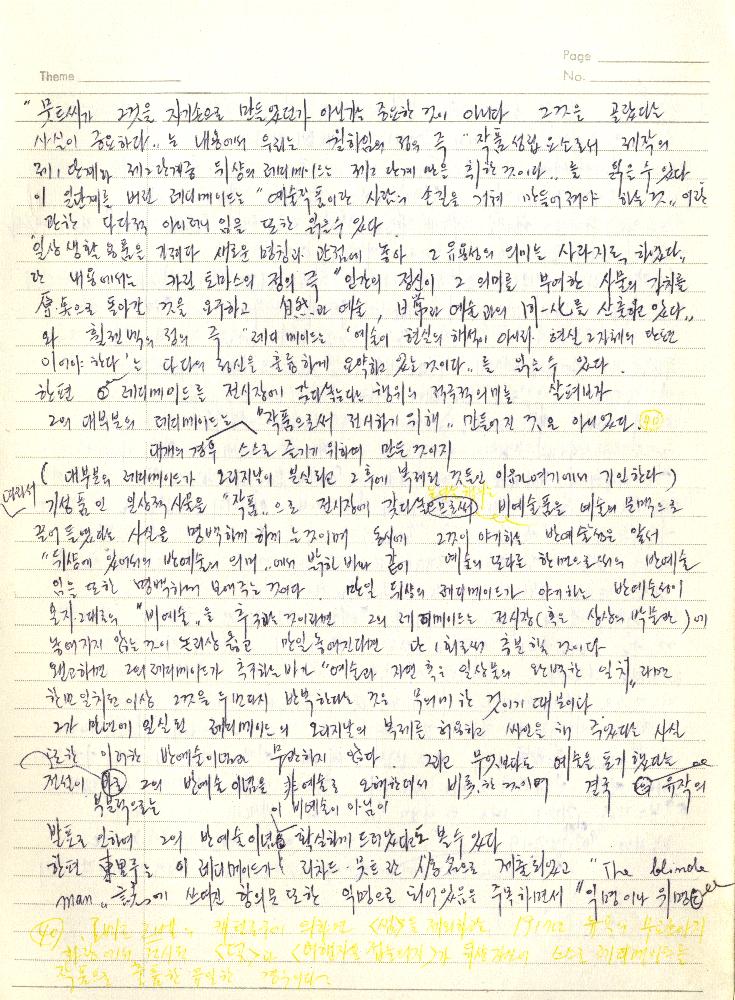 Page
Theme
No.
"뭇트씨가 그것을 자기손으로 만들었던가 아닌가는 중요한 것이 아니다 그것을 골랐다는
사실이 중요하다" 는 내용에서 우리는 의 정의 즉 "작품성립요소로서 제작의
제1단계와 제2단계중 뒤샹의 레디메이드는 제2단계만을 취한것이다" 를 읽을수있다
이 일단계를 버린 레디메이드는 "예술작품이란 사람의 손길을 거쳐 만들어져야 하는것" 이란
관한 다다적 아이러니 임을 또한 읽을수 있다
"일상생활용품을 가져다 새로운 명칭과 관점에 놓아 그 유용성의 의미는 사라지도록 하였다"
란 내용에서는 카린 토마스의 정의 즉 "인간의 정신이 그 의미를 부여한 사물의 가치를
으로 돌아간 것을 요구하고 自然과 예술, 日常과 예술과의 同一化를 산출하고 있다"
와 의 정의 즉 "레디메이드는 '예술이 현실의 해석이 아니라 현실 그자체의 단편
이어야 한다'는 다다의 정신을 훌륭하게 요약하고 있는것이다" 를 읽을수 있다.
한편 레디메이드를 전시장에 갖다놓는다는 행위의 적극적의미를 살펴보자
그의 대부분의 레디메이드는 "작품으로써 전시하기 위해" 만들어진 것은 아니었다. 40
대개의 경우 스스로 즐기기 위하여 만든것이지
(대부분의 레디메이드가 오리지날이 분실되고 그후에 복제된 것들인 이유가여기에서 기인한다)
따라서
기성품인 일상적사물을 "작품" 으로 전시장에 갖다놓으로써 비예술품을 예술의 문맥으로
끌어들였다는 사실을 명백하게 하게 하는것이며 동시에 그것이 야기하는 반예술성은 앞서
"뒤샹에 있어서의 반예술의 의미" 에서 밝힌바와 같이 예술의 또다른 한면으로써의 반예술
임을 또한 명백하게 보여주는것이다. 만일 뒤샹의 레디메이드가 야기하는 반예술성이
문자그대로의 "비예술" 을 추구하는것이라면 그의 레디메이드는 전시장(혹은 상상의 박물관)에
놓여지지 않는것이 논리상 옳고 만일놓여진다면 단 1회로써 충분할 것이다
왜냐하면 그의레디메이드가 추구하는바가 "예술과 자연 혹은 일상물의 완벽한 일치" 라면
한번일치된이상 그것을 두번다시 반복한다는 것은 무의미한 것이기 때문이다
그가 만년에 분실된 레디메이드의 오리지날의 복제를 허용하고 싸인을 해 주었다는 사실
또한 이러한 반예술이념과 무관하지 않다 그리고 무엇보다도 예술을 포기했다는
전설이 그의 반예술이념을 非예술로 오해한데서 비롯한것이며 결국 유작의
부분적으로는 이 비예술이 아님이
발표로 인하여 그의 반예술이념은 확실하게 드러났다고도 볼수있다
한편 東野芳明는 이 레디메이드가 리차드·뭇트란 사용명으로 제출되었고 "The blinde
man" 에 쓰여진 항의문 또한 익명으로 되어있음을 주목하면서 "익명이나 위명은
40) 의하면 <샘>을 제외하면 1917년
전시된 <덫>과 <여행자용 접는아이>가 스스로 레디메이드를
작품으로 출품한 유일한 경우이다.